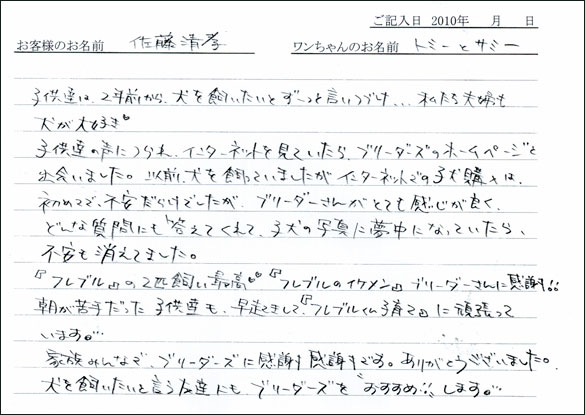 ご記入日 2010年 月 日
お客様のお名前 佐藤清孝 ワンちゃんのお名前 トミーとサミー
子供達は、2年前から、犬を飼いたいとずーっと言いつづけ... 私たち夫婦も
犬が大好き♥
子供達の声につられ、インターネットを見ていたら、ブリーダーズのホームページと
出会いました。以前、犬を飼っていましたがインターネットでの子犬購入は、
初めてで、不安だらけでしたが、ブリーダーさんがとても感じが良く、
どんな質問にも答えてくれて、子犬の写真に夢中になっていたら、
不安も消えてました。
『フレブル』の2匹飼い最高♥♥『フレブルのイケメン』ブリーダーさんに感謝!!
朝が苦手だった子供達も、早起きして、『フレブルくん子育て』に頑張って
います。
家族みんなで、ブリーダーズに感謝!感謝!です。ありがとうございました。
犬を飼いたいと言う友達にも、ブリーダーズを"おすすめ"します。